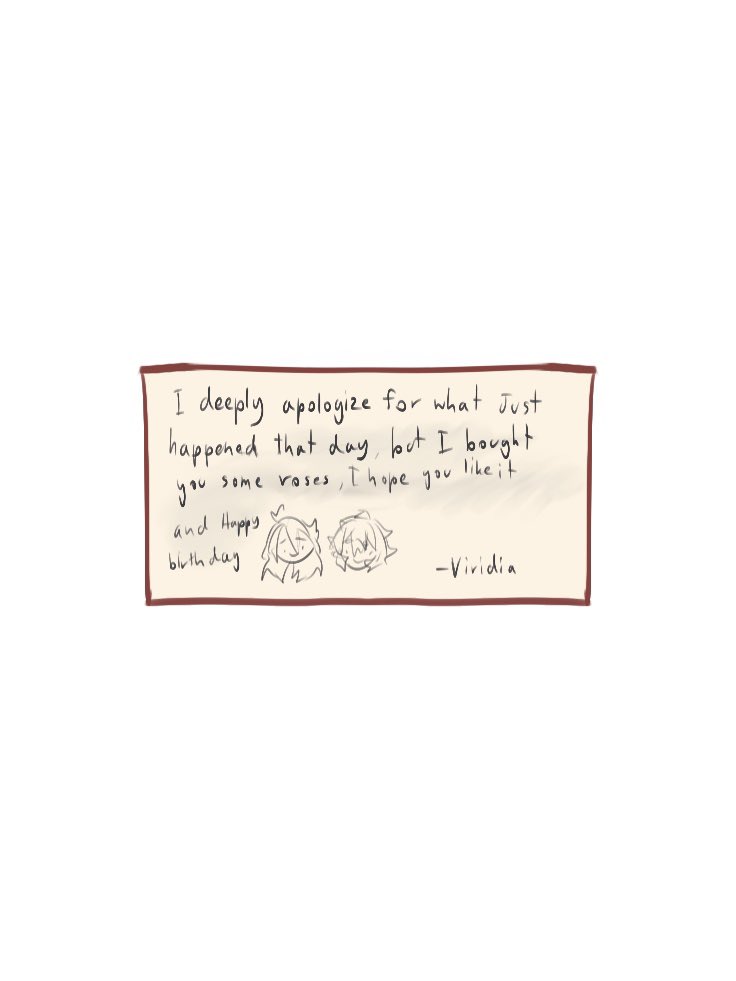 I deeply apologize for what Just
happened that day, but I bought
you some roses, I hope you like it
and Happy
birthday
-Viridia